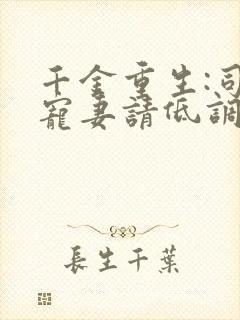 千金重生:司
寵妻請低調
長生千葉